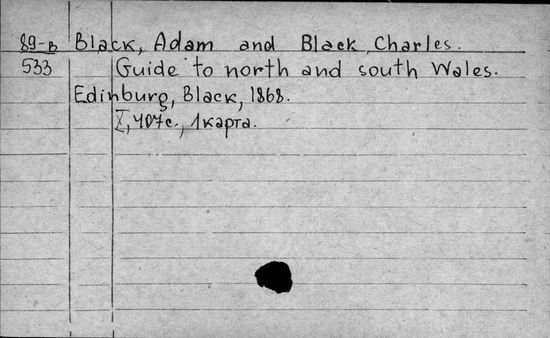 89-в Black, Adam and Black, Charles.
533 Guide to north and south Wales.
Edinburg, Black, 1868.
X, 407 с., 1 карта.